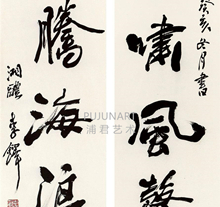 癸亥冬月書
嘯風聲
騰海浪
湖醴李鐸
PUJUNART
浦君艺术